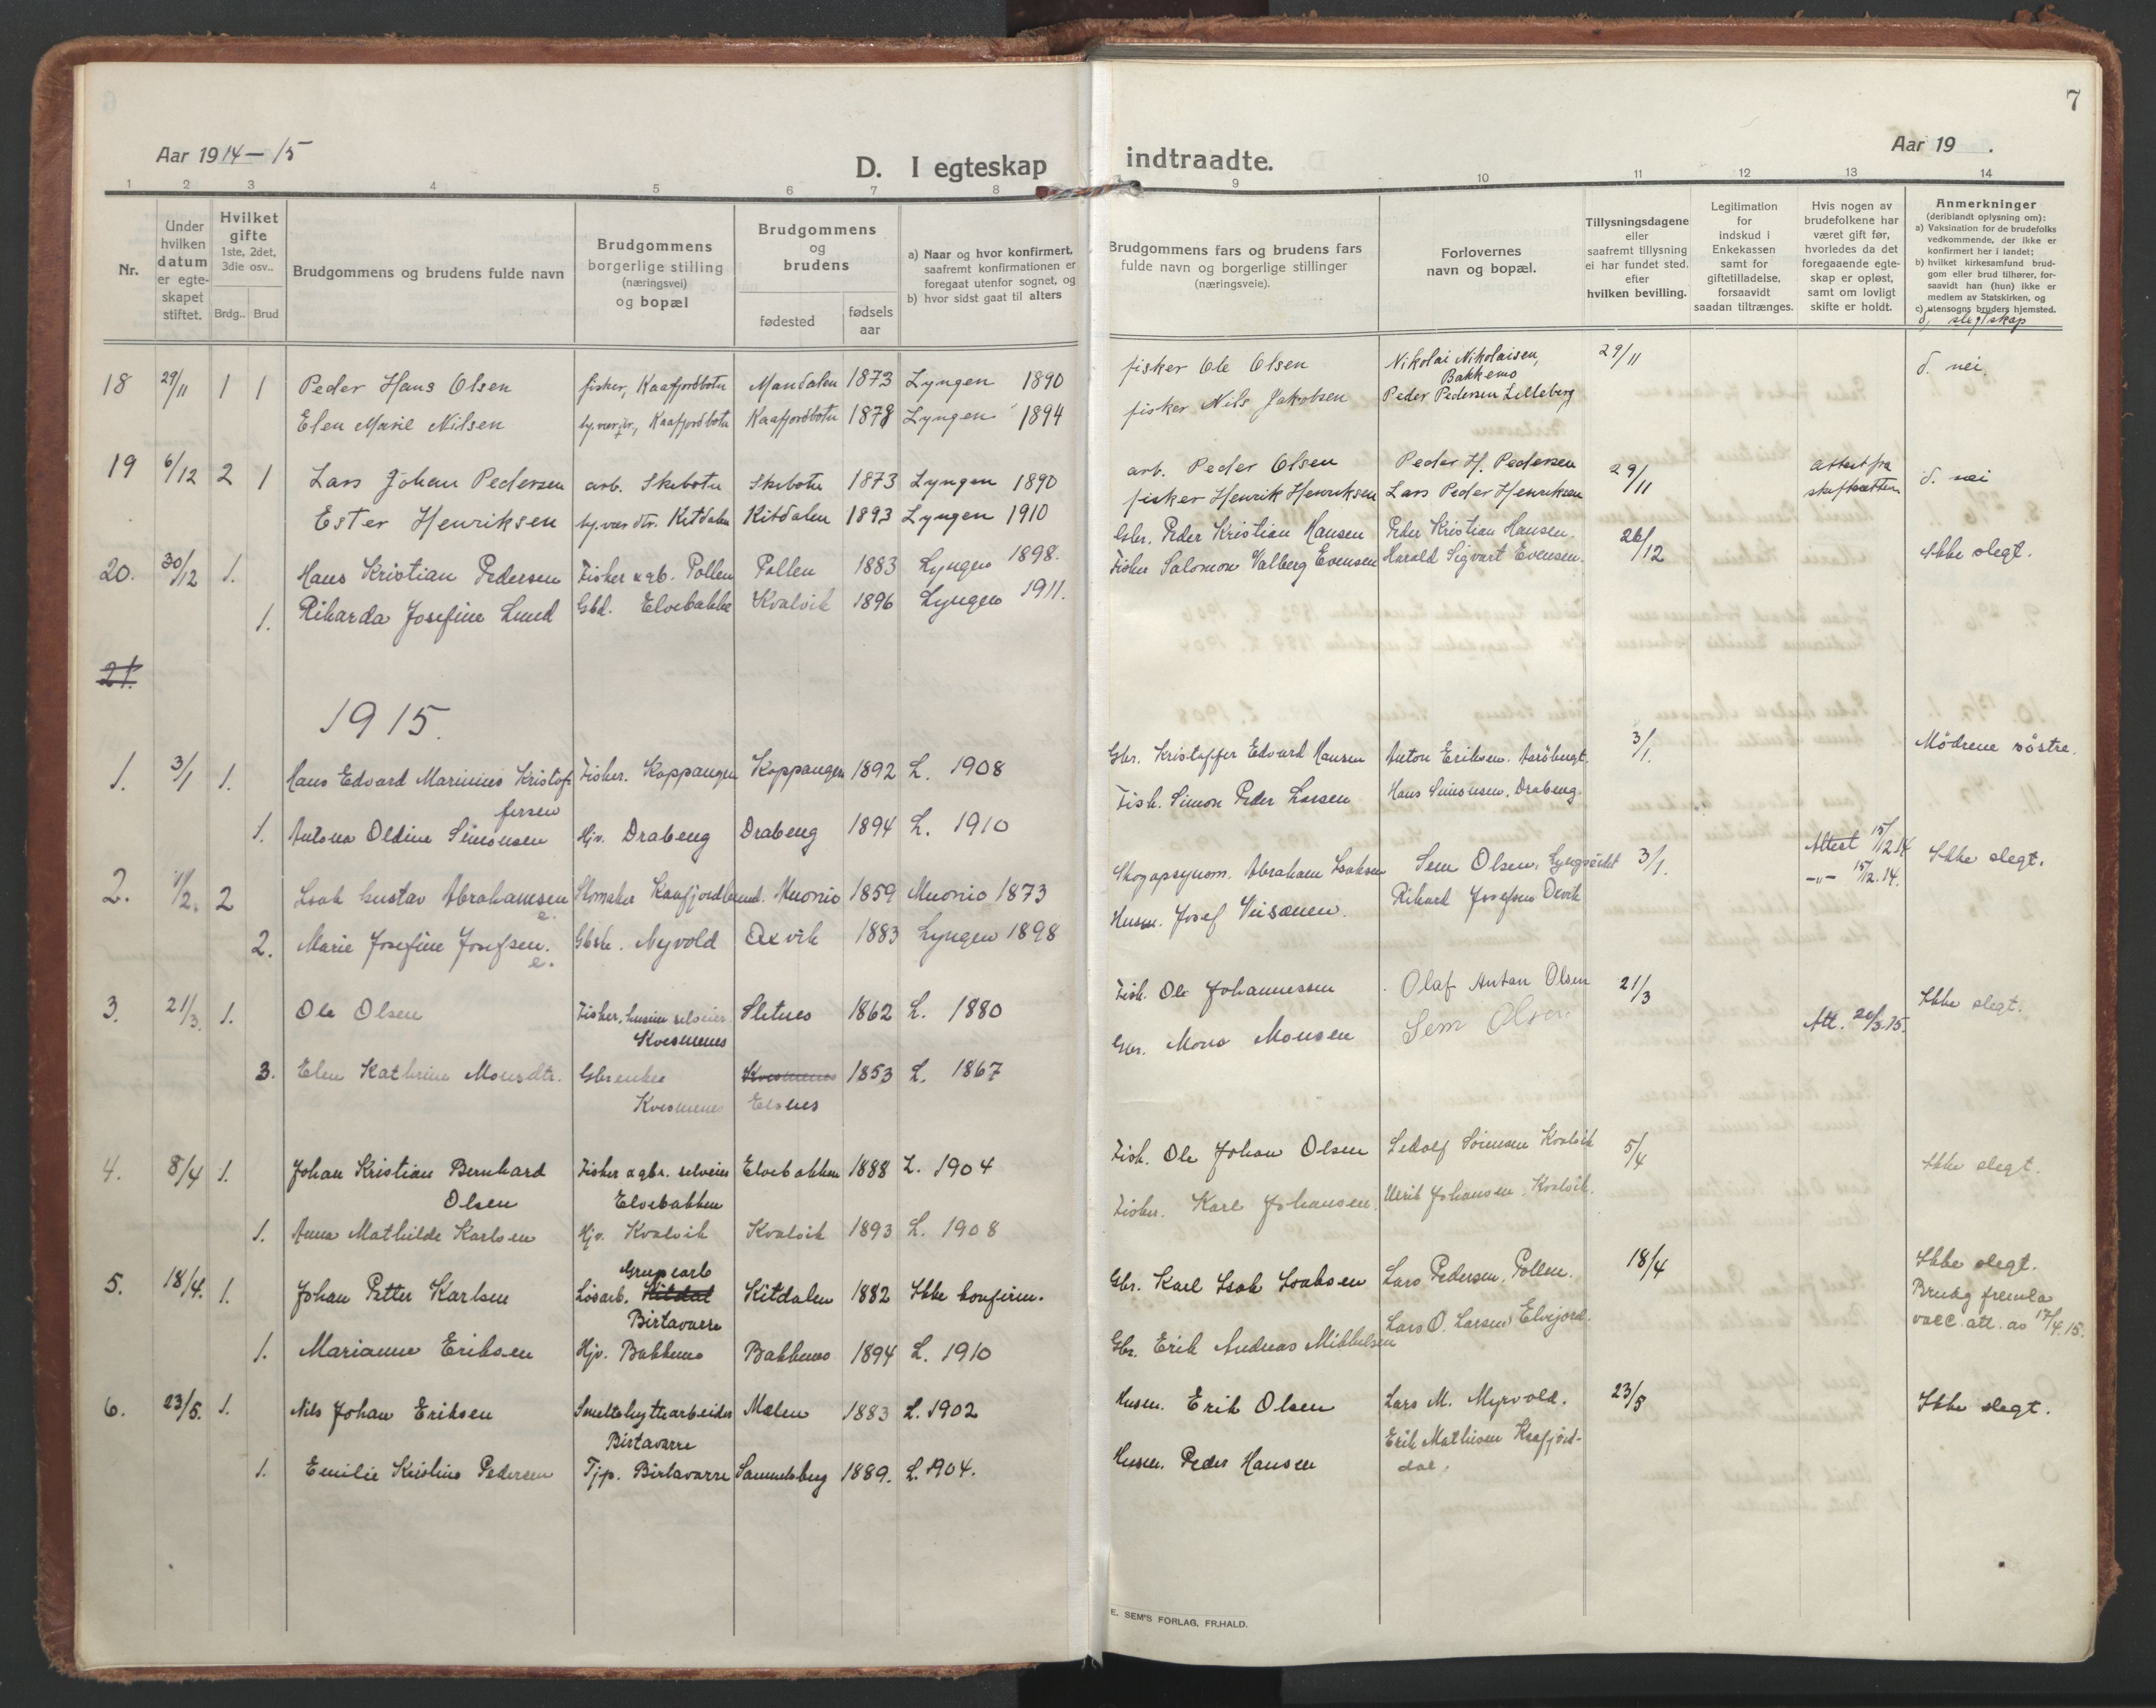 7
Aar 1914-15
D. I egteskap indtraadte.
Aar 19 .
1 2 3 4 5 6 7 8 9 10 11 12 13 14
Nr.
Under hvilken datum er egteskapet stiftet.
Hvilket gifte 1ste, 2det, 3die osv..
Brdg.. Brud
Brudgommens og brudens fulde navn
Brudgommens borgerlige stilling (næringsvei) og bopæl
Brudgommens og brudens
fødested
fødsels aar
a) Naar og hvor konfirmert, saafremt konfirmationen er foregaat utenfor sognet, og
b) hvor sidst gaat til alters
Brudgommens fars og brudens fars fulde navn og borgerlige stillinger (næringsveie).
Forlovernes navn og bopæl.
Tillysningsdagene eller saafremt tillysning ei har fundet sted. efter hvilken bevilling.
Legitimation for indskud i Enkekassen samt for giftetilladelse, forsaavidt saadan tiltrænges.
Hvis nogen av brudefolkene har været gift før, hvorledes da det foregaaende egteskap er opløst, samt om lovligt skifte er holdt.
Anmerkninger (deriblandt oplysning om):
a) Vaksination for de brudefolks vedkommende, der ikke er konfirmert her i landet;
b) hvilket kirkesamfund brudgom eller brud tilhører, forsaavidt han (hun) ikke er medlem av Statskirken, og
c) utensogns bruders hjemsted.
d, slegtskap
18 29/11 1 1 Peder Hans Olsen fisker, Kaafjordbotn Mandalen 1873 Lyngen 1890 fisker Ole Olsen Nikolai Nikolaisen, Bakkemo 29/11 d. nei.
Elen Marie Nilsen Kaafjordbotn Kaafjordbotn 1878 Lyngen 1894 fisker Nils Jakobsen Peder Pedersen Lilleberg
19 6/12 2 1 Lars Johan Pedersen arb. Skibotn Skibotn 1873 Lyngen 1890 arb. Peder Olsen Peder H. Pedersen 29/11 attest fra skifteretten d. nei
Ester Henriksen Kitdalen Kitdalen 1893 Lyngen 1910 fisker Henrik Henriksen Lars Peder Henriksen
20. 30/12 1. Hans Kristian Pedersen Fisker & gb. Pollen Pollen 1883 Lyngen 1898. Gbr. Peder Kristian Hansen Peder Kristian Hansen. 26/12 Ikke slegt.
1. Rikarda Josefine Lund Gbd. Elvebakke Kvalvik 1896 Lyngen 1911. Fisker Salomon Valberg Evensen Harald Sigvart Evensen.
21.
1915.
1. 3/1 1. Hans Edvard Marinius Kristoffersen Fisker. Koppangen Koppangen 1892 L. 1908 Gbr. Kristoffer Edvard Hansen Anton Eriksen. 3/1. Mødrene søstre.
1. Antona Oldine Simonsen Hj. Drabeng Drabeng 1894 L. 1910 Fisk. Simon Peder Larsen Hans Simonsen, Drabeng.
2. 2 Isak Gustav Abrahamsen e. Skomaker Muonio 1859 Muonio 1873 Abraham Isaksen Sem Olsen, Lyngseidet 3/1. Attest 15/12.14 Ikke slegt.
2. Marie Josefine Josefsen. e. Nyvold Oxvik 1883 Lyngen 1898 Husm. Josef Rikard Josefsen Oxvik -"- 15/12.14.
3. 21/3. 1. Ole Olsen Fisker, selveier. Kvesmenes Sletnes 1862 L. 1880 Fisk. Ole Johannessen Olaf Anton Olsen 21/3 Ikke slegt.
3. Elen Kathrine Monsdtr. Gbrenke Kvesmenes Kvesmenes Elsnes 1853 L. 1867 Gbr. Mons Monsen Sem Olsen. Att. 20/3.15.
4. 8/4 1. Johan Kristian Bernhard Olsen Fisker & gbr. selveier Elvebakken Elvebakken 1888 L. 1904 Fisk. Ole Johan Olsen Ledolf Sørensen Kvalvik 5/4 Ikke slegt.
1. Anna Mathilde Karlsen Hj. Kvalvik Kvalvik 1893 L. 1908 Fisker. Karl Johansen. Ulrik Johansen, Kvalvik.
5. 18/4. 1. Johan Petter Karlsen Løsarb. Kitdal Birtavarre Grubearb Kitdalen 1882 Ikke konfirm. Gbr. Karl Isak Isaksen Lars Pedersen, Pollen. 18/4 Ikke slegt. Brudg fremla vacc. att. av 17/4.15.
1. Marianne Eriksen Hj. Bakkemo Bakkemo 1894 L. 1910 Gbr. Erik Andreas Mikkelsen Lars O. Larsen, Elvejord.
6. 23/5. 1. Nils Johan Eriksen Smeltehyttearbeider Birtavarre Malen 1883 L. 1902 Husm. Erik Olsen Lars M. Myrvold. 23/5 Ikke slegt.
1. Emilie Kristine Pedersen Tjp. Birtavarre Samuelsberg 1889. L. 1904. Husm. Peder Hansen Erik Mathisen Kaafjorddal.
E. SEM'S FORLAG, FR.HALD.